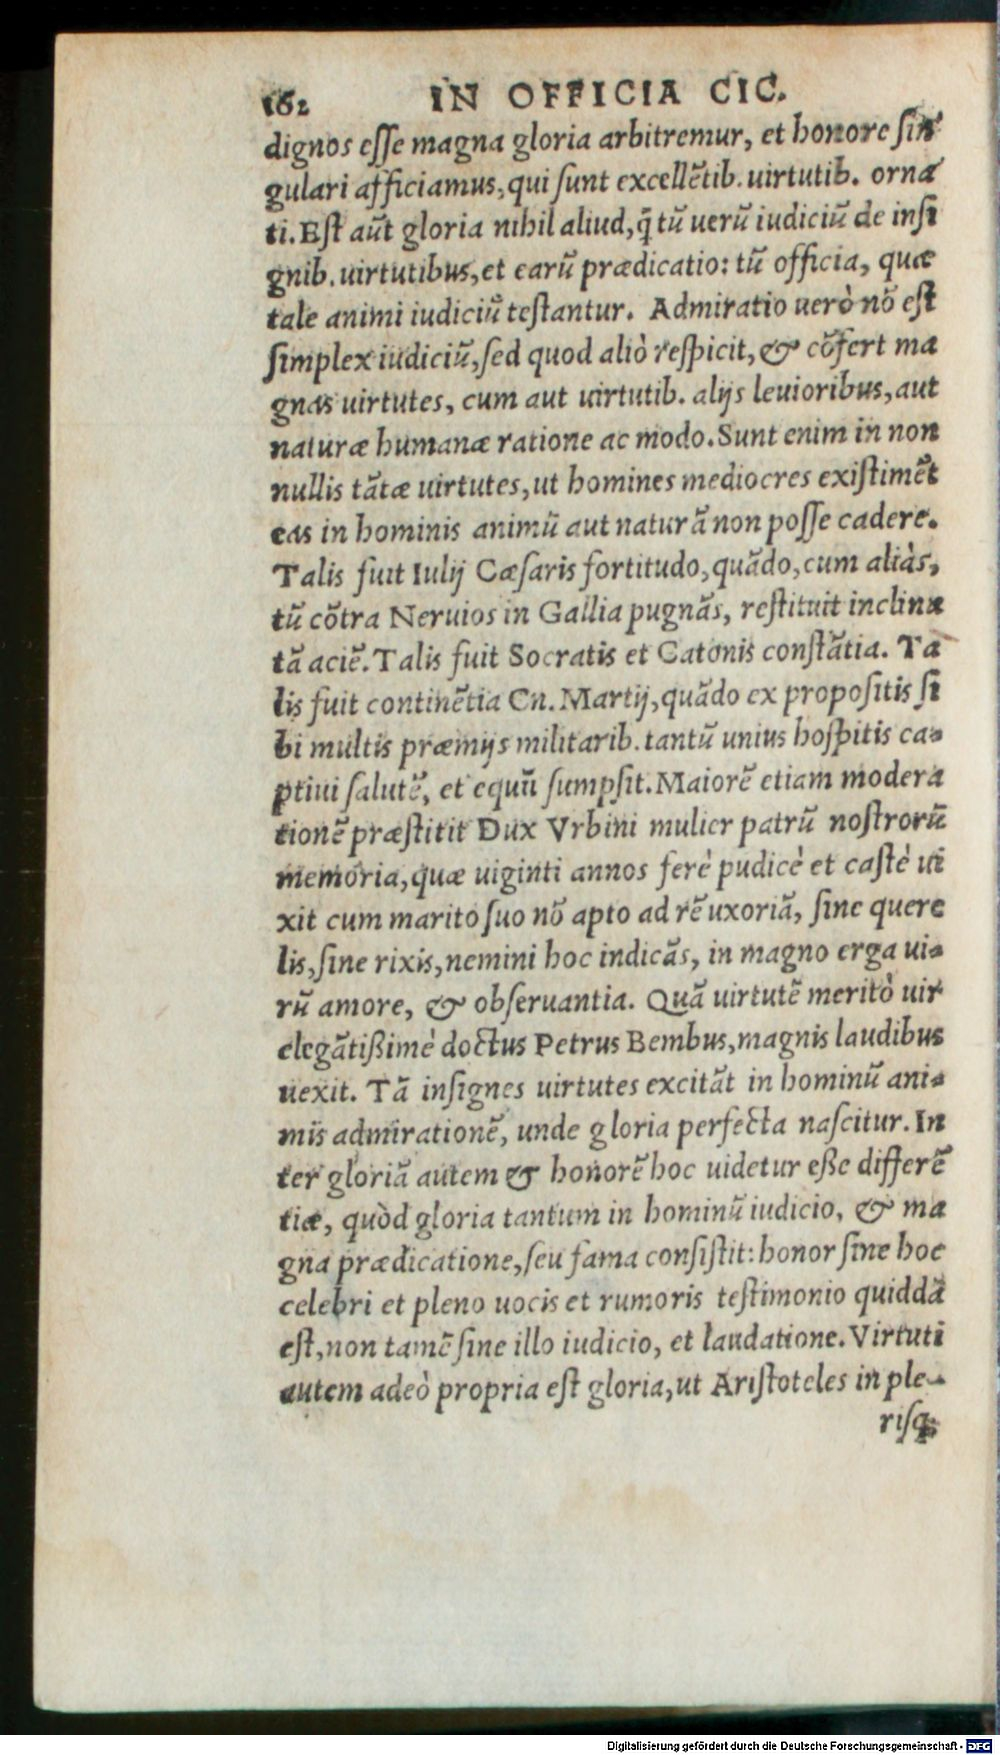 162 IN OFFICIA CIC.
dignos eſſe magna gloria arbitremur, et honore ſin
gulari afficiamus, qui ſunt excellẽtib. uirtutib. orna
ti. Eſt aũt gloria nihil aliud, q̃ tũ uerũ iudiciũ de inſi
gnib. uirtutibus, et earũ prædicatio: tũ officia, quæ
tale animi iudiciũ teſtantur. Admiratio uerò nõ eſt
ſimplex iudiciũ, ſed quod aliò reſpicit, & cõfert ma
gnas uirtutes, cum aut uirtutib. alijs leuioribus, aut
naturæ humanæ ratione ac modo. Sunt enim in non
nullis tãtæ uirtutes, ut homines mediocres exiſtimẽt
eas in hominis animũ aut naturã non poſſe cadere.
Talis fuit Iulij Cæſaris fortitudo, quãdo, cum aliàs,
tũ cõtra Neruios in Gallia pugnãs, reſtituit inclina
tã aciẽ. Talis fuit Socratis et Catonis conſtãtia. Ta
lis fuit continẽtia Cn. Martij, quãdo ex propoſitis ſi
bi multis præmijs militarib. tantũ unius hoſpitis ca-
ptiui ſalutẽ, et equũ ſumpſit. Maiorẽ etiam modera
tionẽ præſtitit Dux Vrbini mulier patrũ noſtrorũ
memoria, quæ uiginti annos ferè pudicè et caſtè ui
xit cum marito ſuo nõ apto ad rẽ uxoriã, ſine quere
lis, ſine rixis, nemini hoc indicãs, in magno erga ui-
rũ amore, & obſeruantia. Quã uirtutẽ meritò uir
elegãtißimè doctus Petrus Bembus, magnis laudibus
uexit. Tã inſignes uirtutes excitãt in hominũ ani-
mis admirationẽ, unde gloria perfecta naſcitur. In
ter gloriã autem & honorẽ hoc uidetur eße differẽ
tiæ, quòd gloria tantum in hominũ iudicio, & ma
gna prædicatione, ſeu fama conſiſtit: honor ſine hoc
celebri et pleno uocis et rumoris teſtimonio quiddã
eſt, non tamẽ ſine illo iudicio, et laudatione. Virtuti
autem adeò propria eſt gloria, ut Ariſtoteles in ple-
riſq;
Digitalisierung gefördert durch die Deutsche Forschungsgemeinschaft - DFG